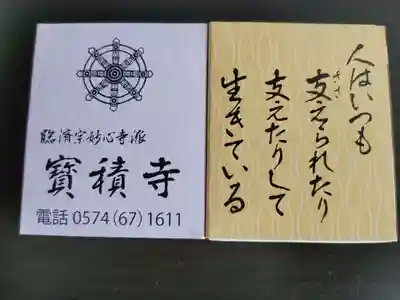 臨済宗妙心寺派
寶積寺
電話 0574(67)1611
人はいつも
ささ
支えられたり
支えたりして
生きている